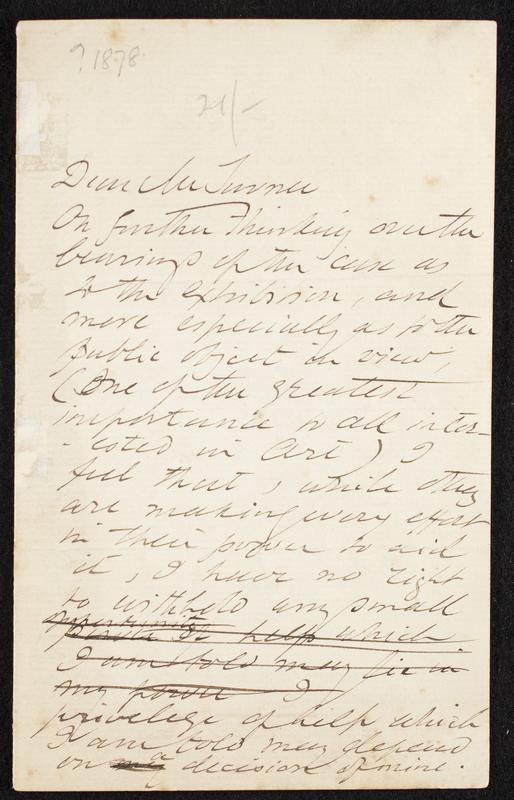 ? 1878.
21/-
Dear Mr Turner
On further thinking over the
bearings of the case as
to the exhibition, and
more especially as to the
public object in view,
(One of the greatest
importance to all inter-
-ested in Art) I
feel that, while others
are making every effort
in their power to aid
it, I have no right
to withhold any small
opportunity
power to help which
I am told may lie in
my power I
privilege of help which
I am told may depend
on a decision of mine.